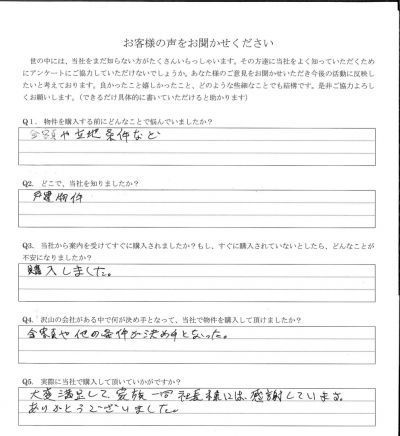 お客様の声をお聞かせください
世の中には、当社をまだ知らない方がたくさんいらっしゃいます。その方達に当社をよく知っていただくため
にアンケートにご協力していただけないでしょうか。あなた様のご意見をお聞かせいただき今後の活動に反映し
たいと考えております。良かったこと嬉しかったこと、どのような些細なことでも結構です。是非ご協力よろし
くお願いします。（できるだけ具体的に書いていただけると助かります）
Q1. 物件を購入する前にどんなことで悩んでいましたか？
金額や立地条件など
Q2. どこで、当社を知りましたか？
戸建物件
Q3. 当社から案内を受けてすぐに購入されましたか？もし、すぐに購入されていないとしたら、どんなことが
不安になりましたか？
購入しました。
Q4. 沢山の会社がある中で何が決め手となって、当社で物件を購入して頂けましたか？
金額や他の条件が決め手となった。
Q5. 実際に当社で購入して頂いていかがですか？
大変満足して、家族一同社長様には、感謝しています。
ありがとうございました。